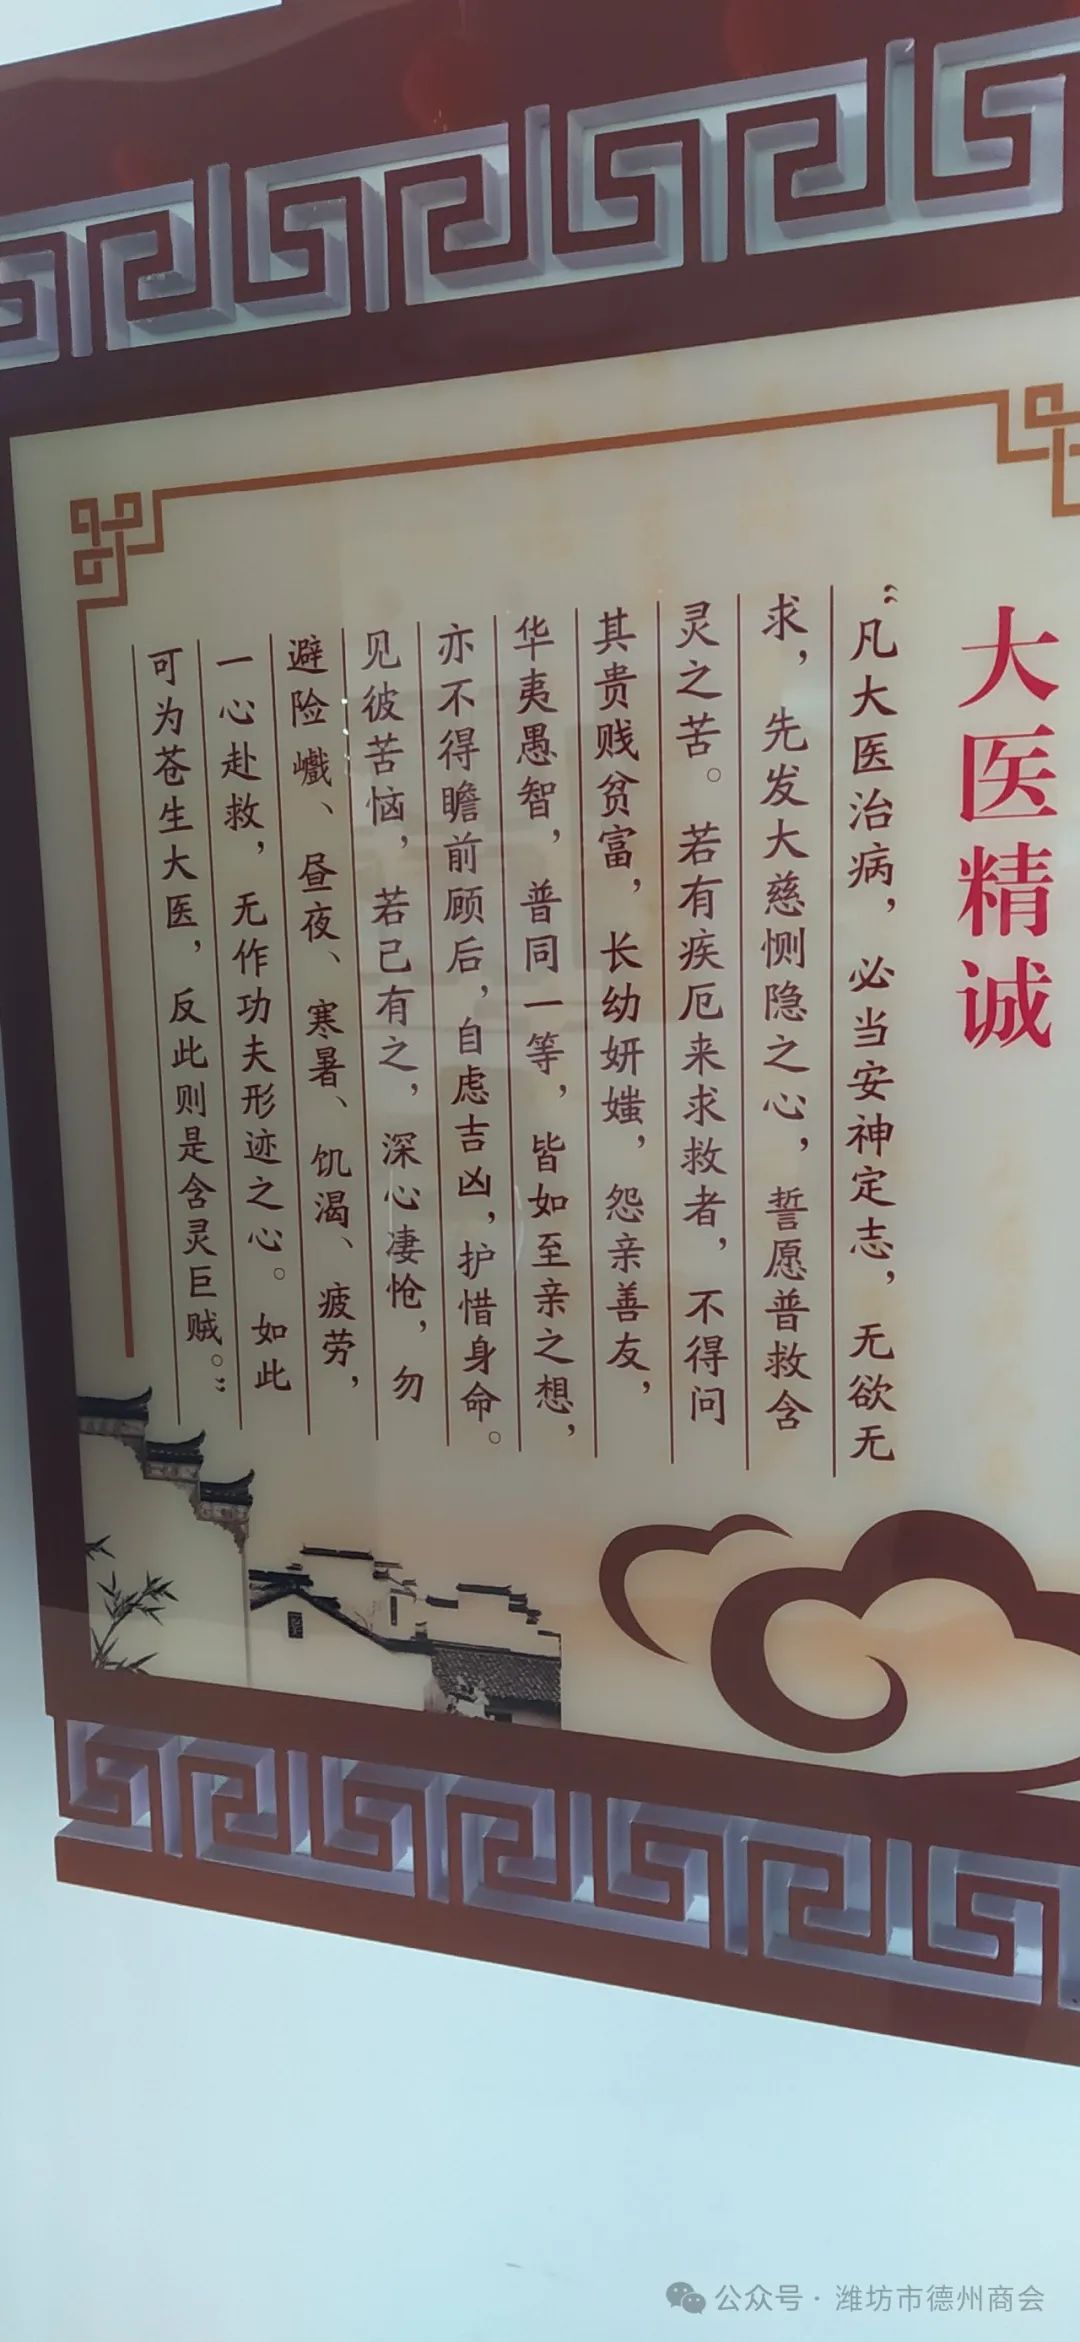 大医精诚
“凡大医治病，必当安神定志，无欲无
求，先发大慈恻隐之心，誓愿普救含
灵之苦。若有疾厄来求救者，不得问
其贵贱贫富，长幼妍媸，怨亲善友，
华夷愚智，普同一等，皆如至亲之想，
亦不得瞻前顾后，自虑吉凶，护惜身命。
见彼苦恼，若己有之，深心凄怆，勿
避险巇、昼夜、寒暑、饥渴、疲劳，
一心赴救，无作功夫形迹之心。如此
可为苍生大医，反此则是含灵巨贼。”
公众号·潍坊市德州商会